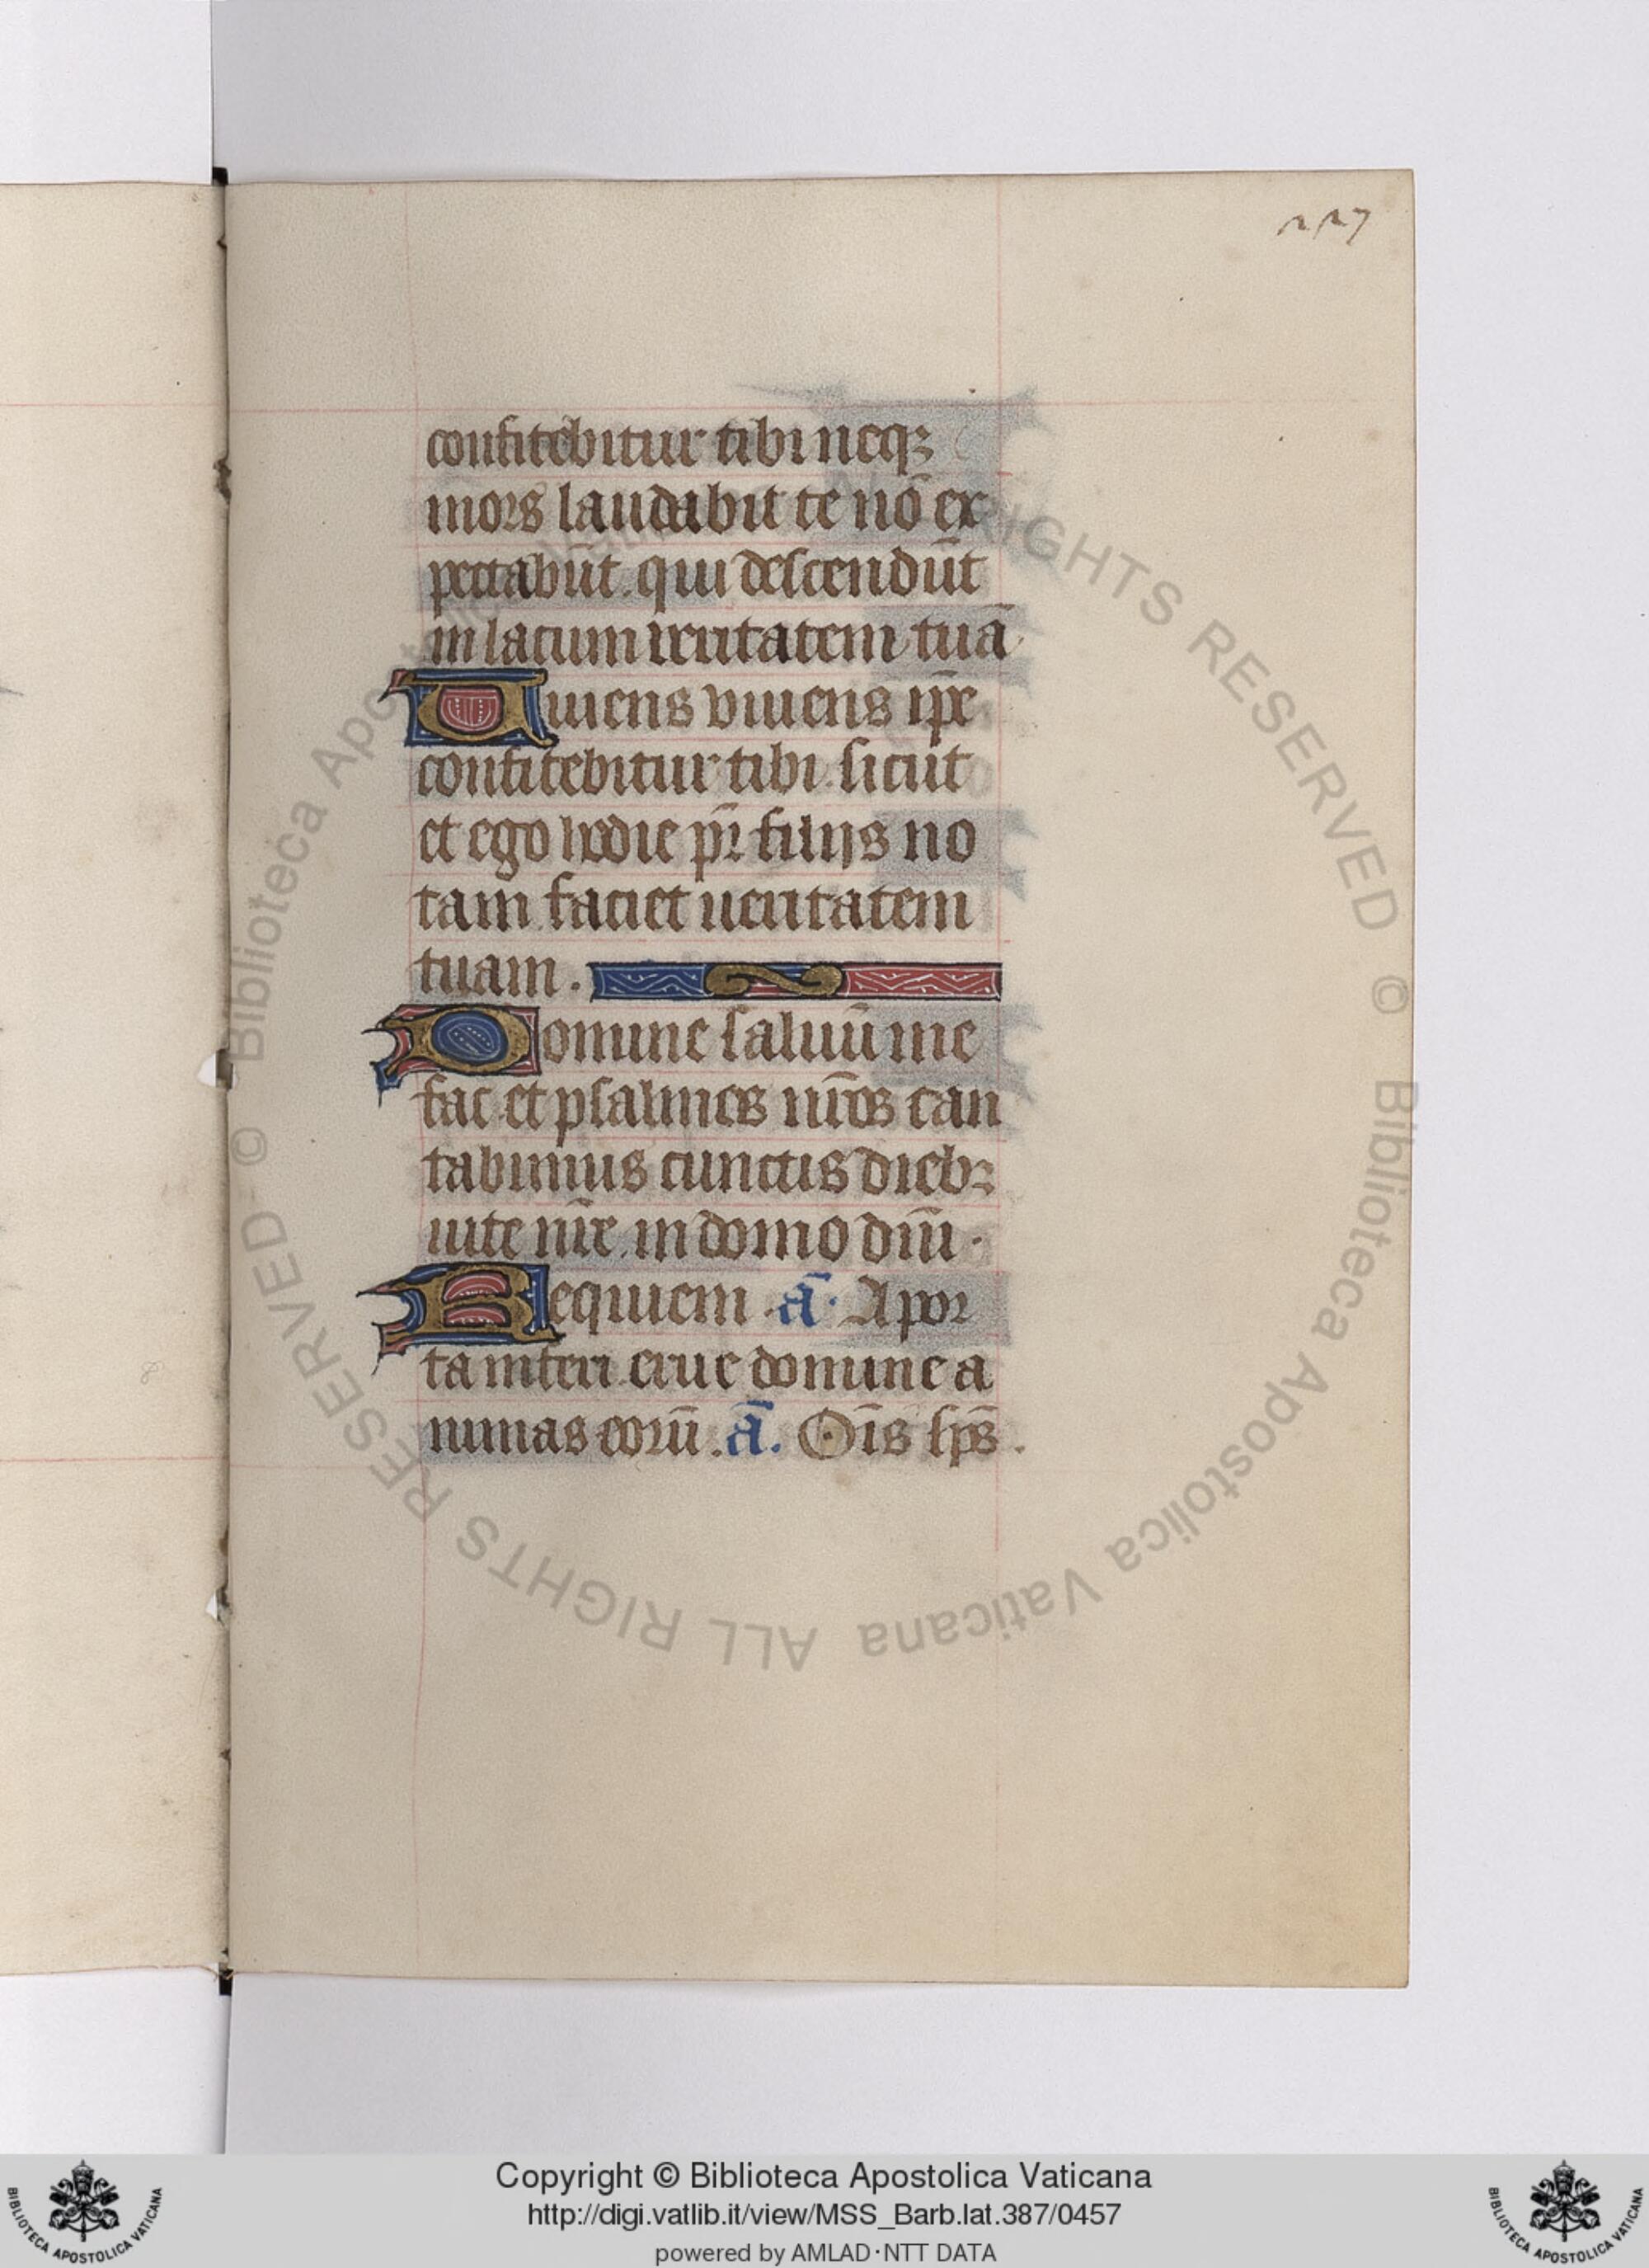 227
confitebitur tibi neqꝫ
mors laudabit te nō ex
pectabūt. qui descendūt
in lacum ueritatem tuā
Uiuens viuens ip̄e
confitebitur tibi. sicut
et ego hodie pr̄ filijs no
tam faciet ueritatem
tuam.
Domine saluū me
fac et psalmos nr̄os can
tabimus cunctis diebꝫ
uite nr̄e. in domo dn̄i.
Requiem. ā. A por
ta inferi erue domine a
nimas eorū. ā. Oīs sp̄s.
© Biblioteca Apostolica Vaticana ALL RIGHTS RESERVED
© Biblioteca Apostolica Vaticana ALL RIGHTS RESERVED
Copyright © Biblioteca Apostolica Vaticana
http://digi.vatlib.it/view/MSS_Barb.lat.387/0457
powered by AMLAD·NTT DATA
BIBLIOTECA APOSTOLICA VATICANA
BIBLIOTECA APOSTOLICA VATICANA